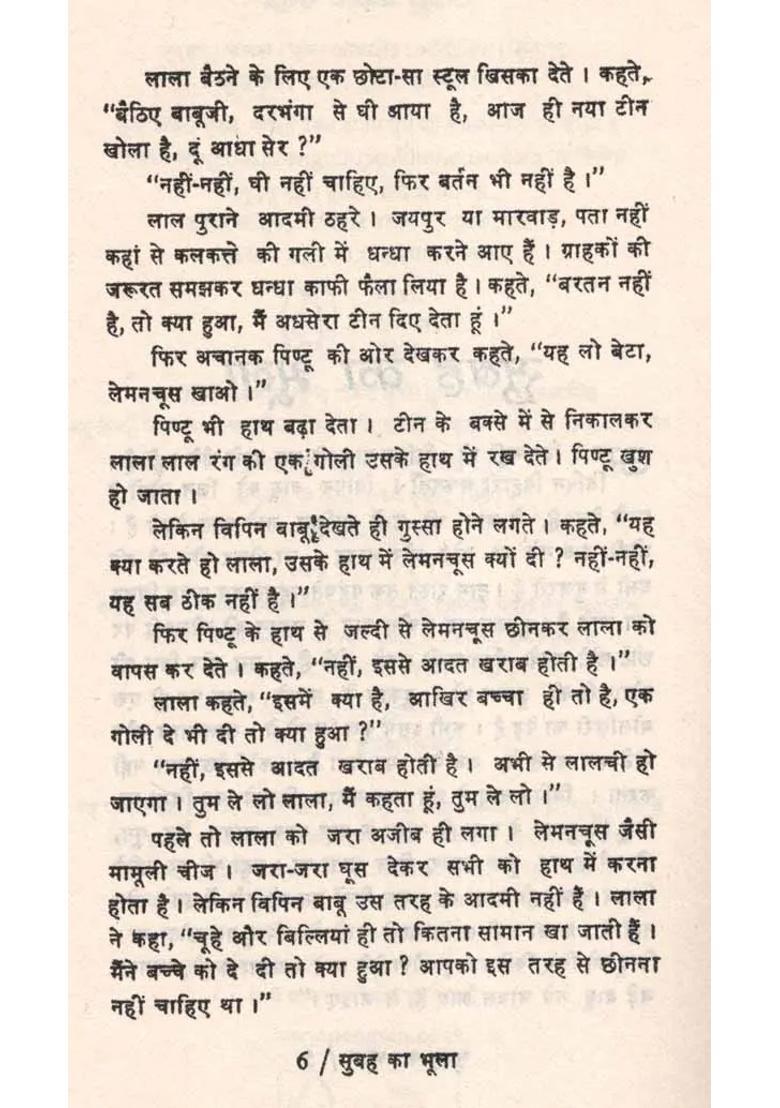 लाला बैठने के लिए एक छोटा-सा स्टूल खिसका देते । कहते,
“बैठिए बाबूजी, दरभंगा से घी आया है, आज ही नया टीन
खोला है, दूं आधा सेर ?”
“नहीं-नहीं, घी नहीं चाहिए, फिर बर्तन भी नहीं है ।”
लाल पुराने आदमी ठहरे । जयपुर या मारवाड़, पता नहीं
कहां से कलकत्ते की गली में धन्धा करने आए हैं । ग्राहकों की
जरूरत समझकर धन्धा काफी फैला लिया है । कहते, “बरतन नहीं
है, तो क्या हुआ, मैं अधसेरा टीन दिए देता हूं ।”
फिर अचानक पिण्टू की ओर देखकर कहते, “यह लो बेटा,
लेमनचूस खाओ ।”
पिण्टू भी हाथ बढ़ा देता । टीन के बक्से में से निकालकर
लाला लाल रंग की एक गोली उसके हाथ में रख देते । पिण्टू खुश
हो जाता ।
लेकिन विपिन बाबू देखते ही गुस्सा होने लगते । कहते, “यह
क्या करते हो लाला, उसके हाथ में लेमनचूस क्यों दी ? नहीं-नहीं,
यह सब ठीक नहीं है ।”
फिर पिण्टू के हाथ से जल्दी से लेमनचूस छीनकर लाला को
वापस कर देते । कहते, “नहीं, इससे आदत खराब होती है ।”
लाला कहते, “इसमें क्या है, आखिर बच्चा ही तो है, एक
गोली दे भी दी तो क्या हुआ ?”
“नहीं, इससे आदत खराब होती है । अभी से लालची हो
जाएगा । तुम ले लो लाला, मैं कहता हूं, तुम ले लो ।”
पहले तो लाला को जरा अजीब ही लगा । लेमनचूस जैसी
मामूली चीज । जरा-जरा घूस देकर सभी को हाथ में करना
होता है । लेकिन विपिन बाबू उस तरह के आदमी नहीं हैं । लाला
ने कहा, “चूहे और बिल्लियां ही तो कितना सामान खा जाती हैं ।
मैंने बच्चे को दे दी तो क्या हुआ ? आपको इस तरह से छीनना
नहीं चाहिए था ।”
6 / सुबह का भूला